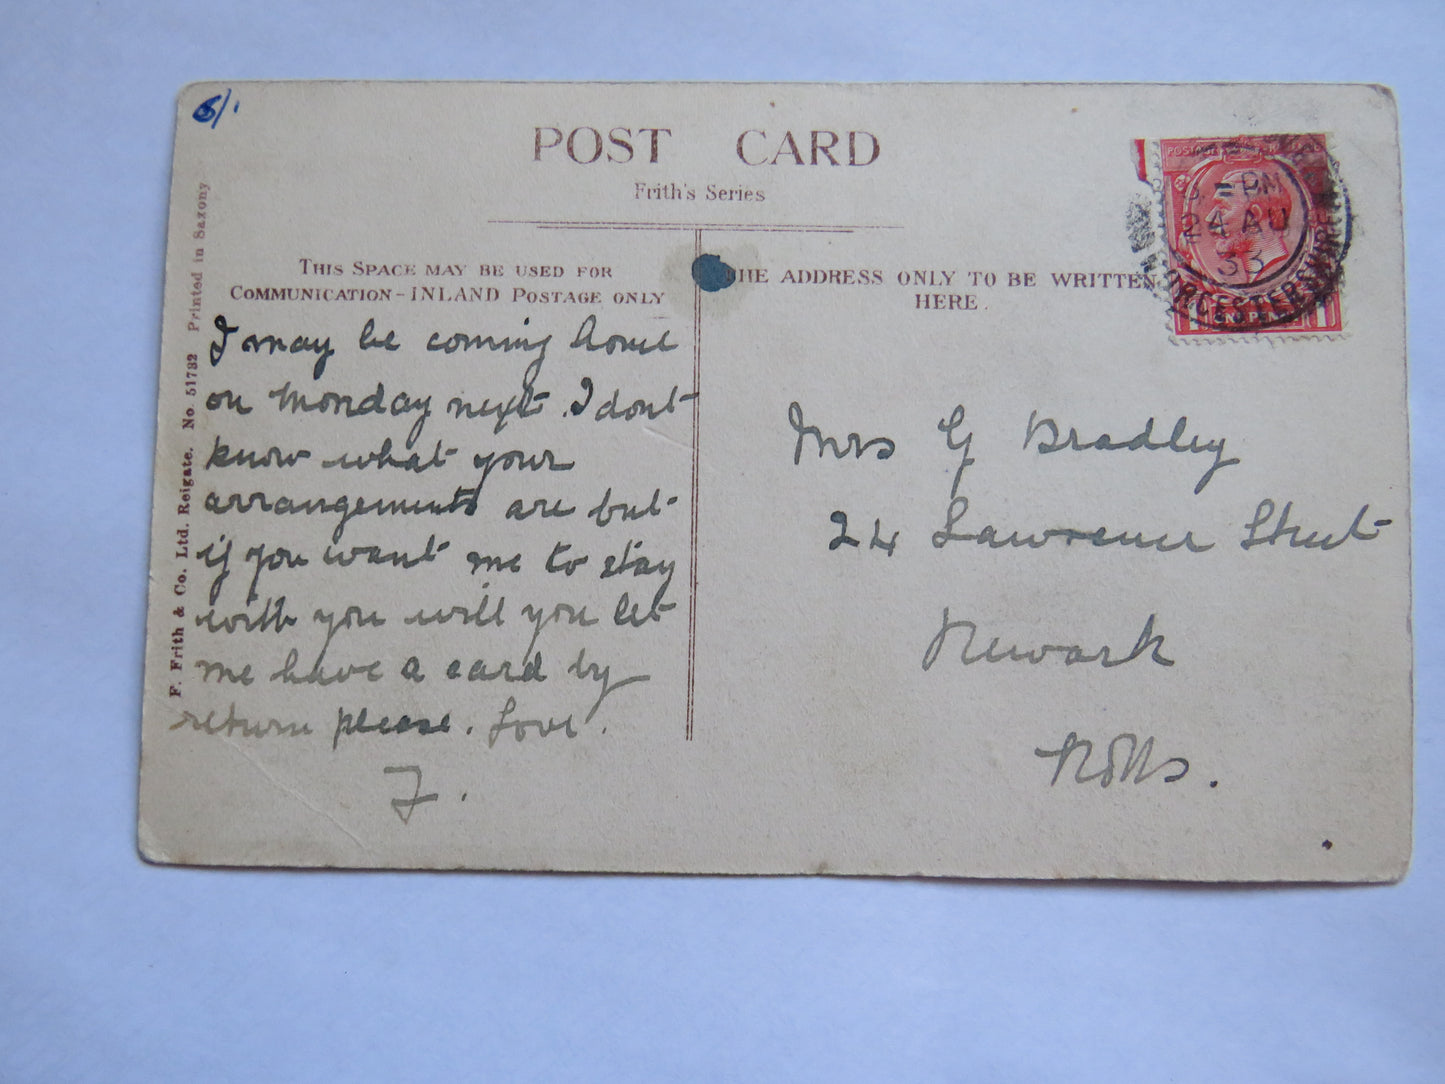 6/.
POST CARD
Frith's Series
THIS SPACE MAY BE USED FOR
COMMUNICATION-INLAND POSTAGE ONLY
HE ADDRESS ONLY TO BE WRITTEN
HERE.
F. Frith & Co. Ltd. Reigate. No. 51732 Printed in Saxony
I may be coming home
on Monday next. I dont
know what your
arrangements are but
if you want me to stay
with you will you let
me have a card by
return please. Love.
F.
Mrs G Bradley
24 Lawrence Street
Newark
Notts.
POSTAGE
PM
24 AU
33
WORCESTERSHIRE
1 ONE PENNY 1